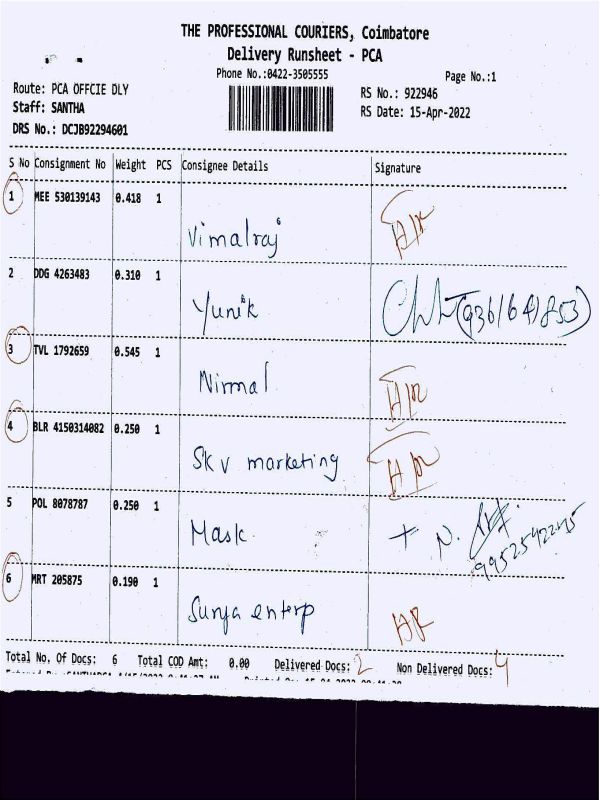 THE PROFESSIONAL COURIERS, Coimbatore
Delivery Runsheet - PCA
Phone No.:0422-3505555
Page No.:1
Route: PCA OFFCIE DLY
RS No.: 922946
Staff: SANTHA
RS Date: 15-Apr-2022
DRS No.: DCJB92294601
S No Consignment No Weight PCS Consignee Details Signature
1 MEE 530139143 0.418 1
Vimalraj
2 DDG 4263483 0.310 1
Yunik
3 TVL 1792659 0.545 1
Nirmal
4 BLR 4150314082 0.250 1
SK V marketing
5 POL 8078787 0.250 1
Mask N.
6 MRT 205875 0.190 1
Surya enterp
Total No. Of Docs: 6 Total COD Amt: 0.00 Delivered Docs: 2 Non Delivered Docs: 4